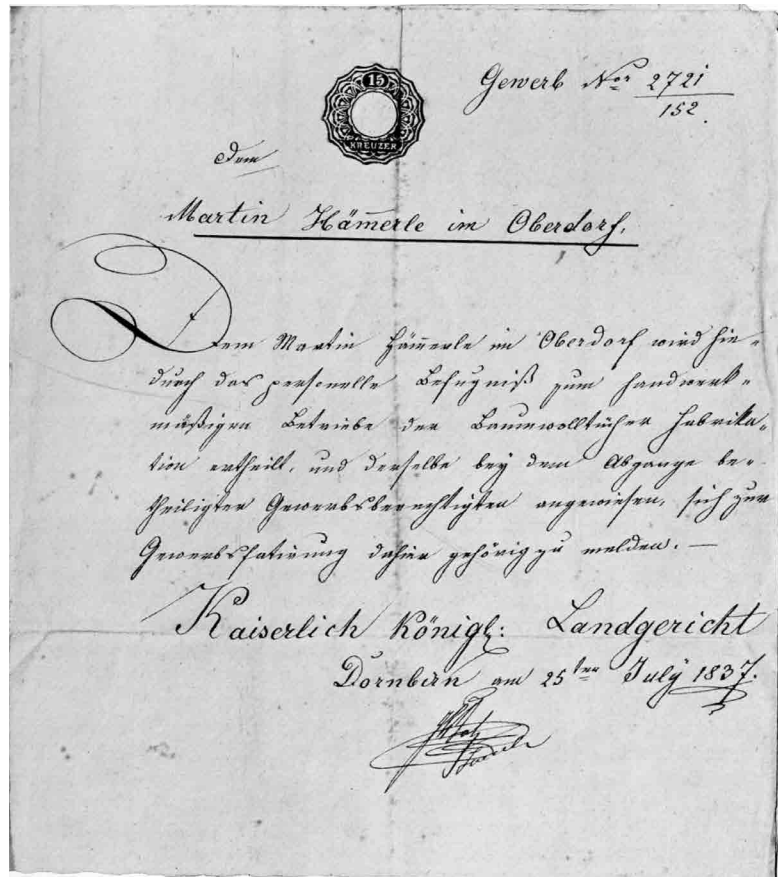 15
KREUZER
Gewerb Nor 2721
152.
Dem
Martin Häm̄erle im Oberdorf.
Dem Martin Häm̄erle im Oberdorf wird hie-
durch das personelle Befugniß zum handwerk-
mäßigen Betriebe der Baumwolltücher Fabrika-
tion ertheilt, und derselbe bey dem Abgange be-
theiligter Gewerbsberechtigten angewiesen, sich zur
Gewerbsfatirung dahier gehörig zu melden. —
Kaiserlich Königl: Landgericht
Dornbirn am 25ten July 1837.